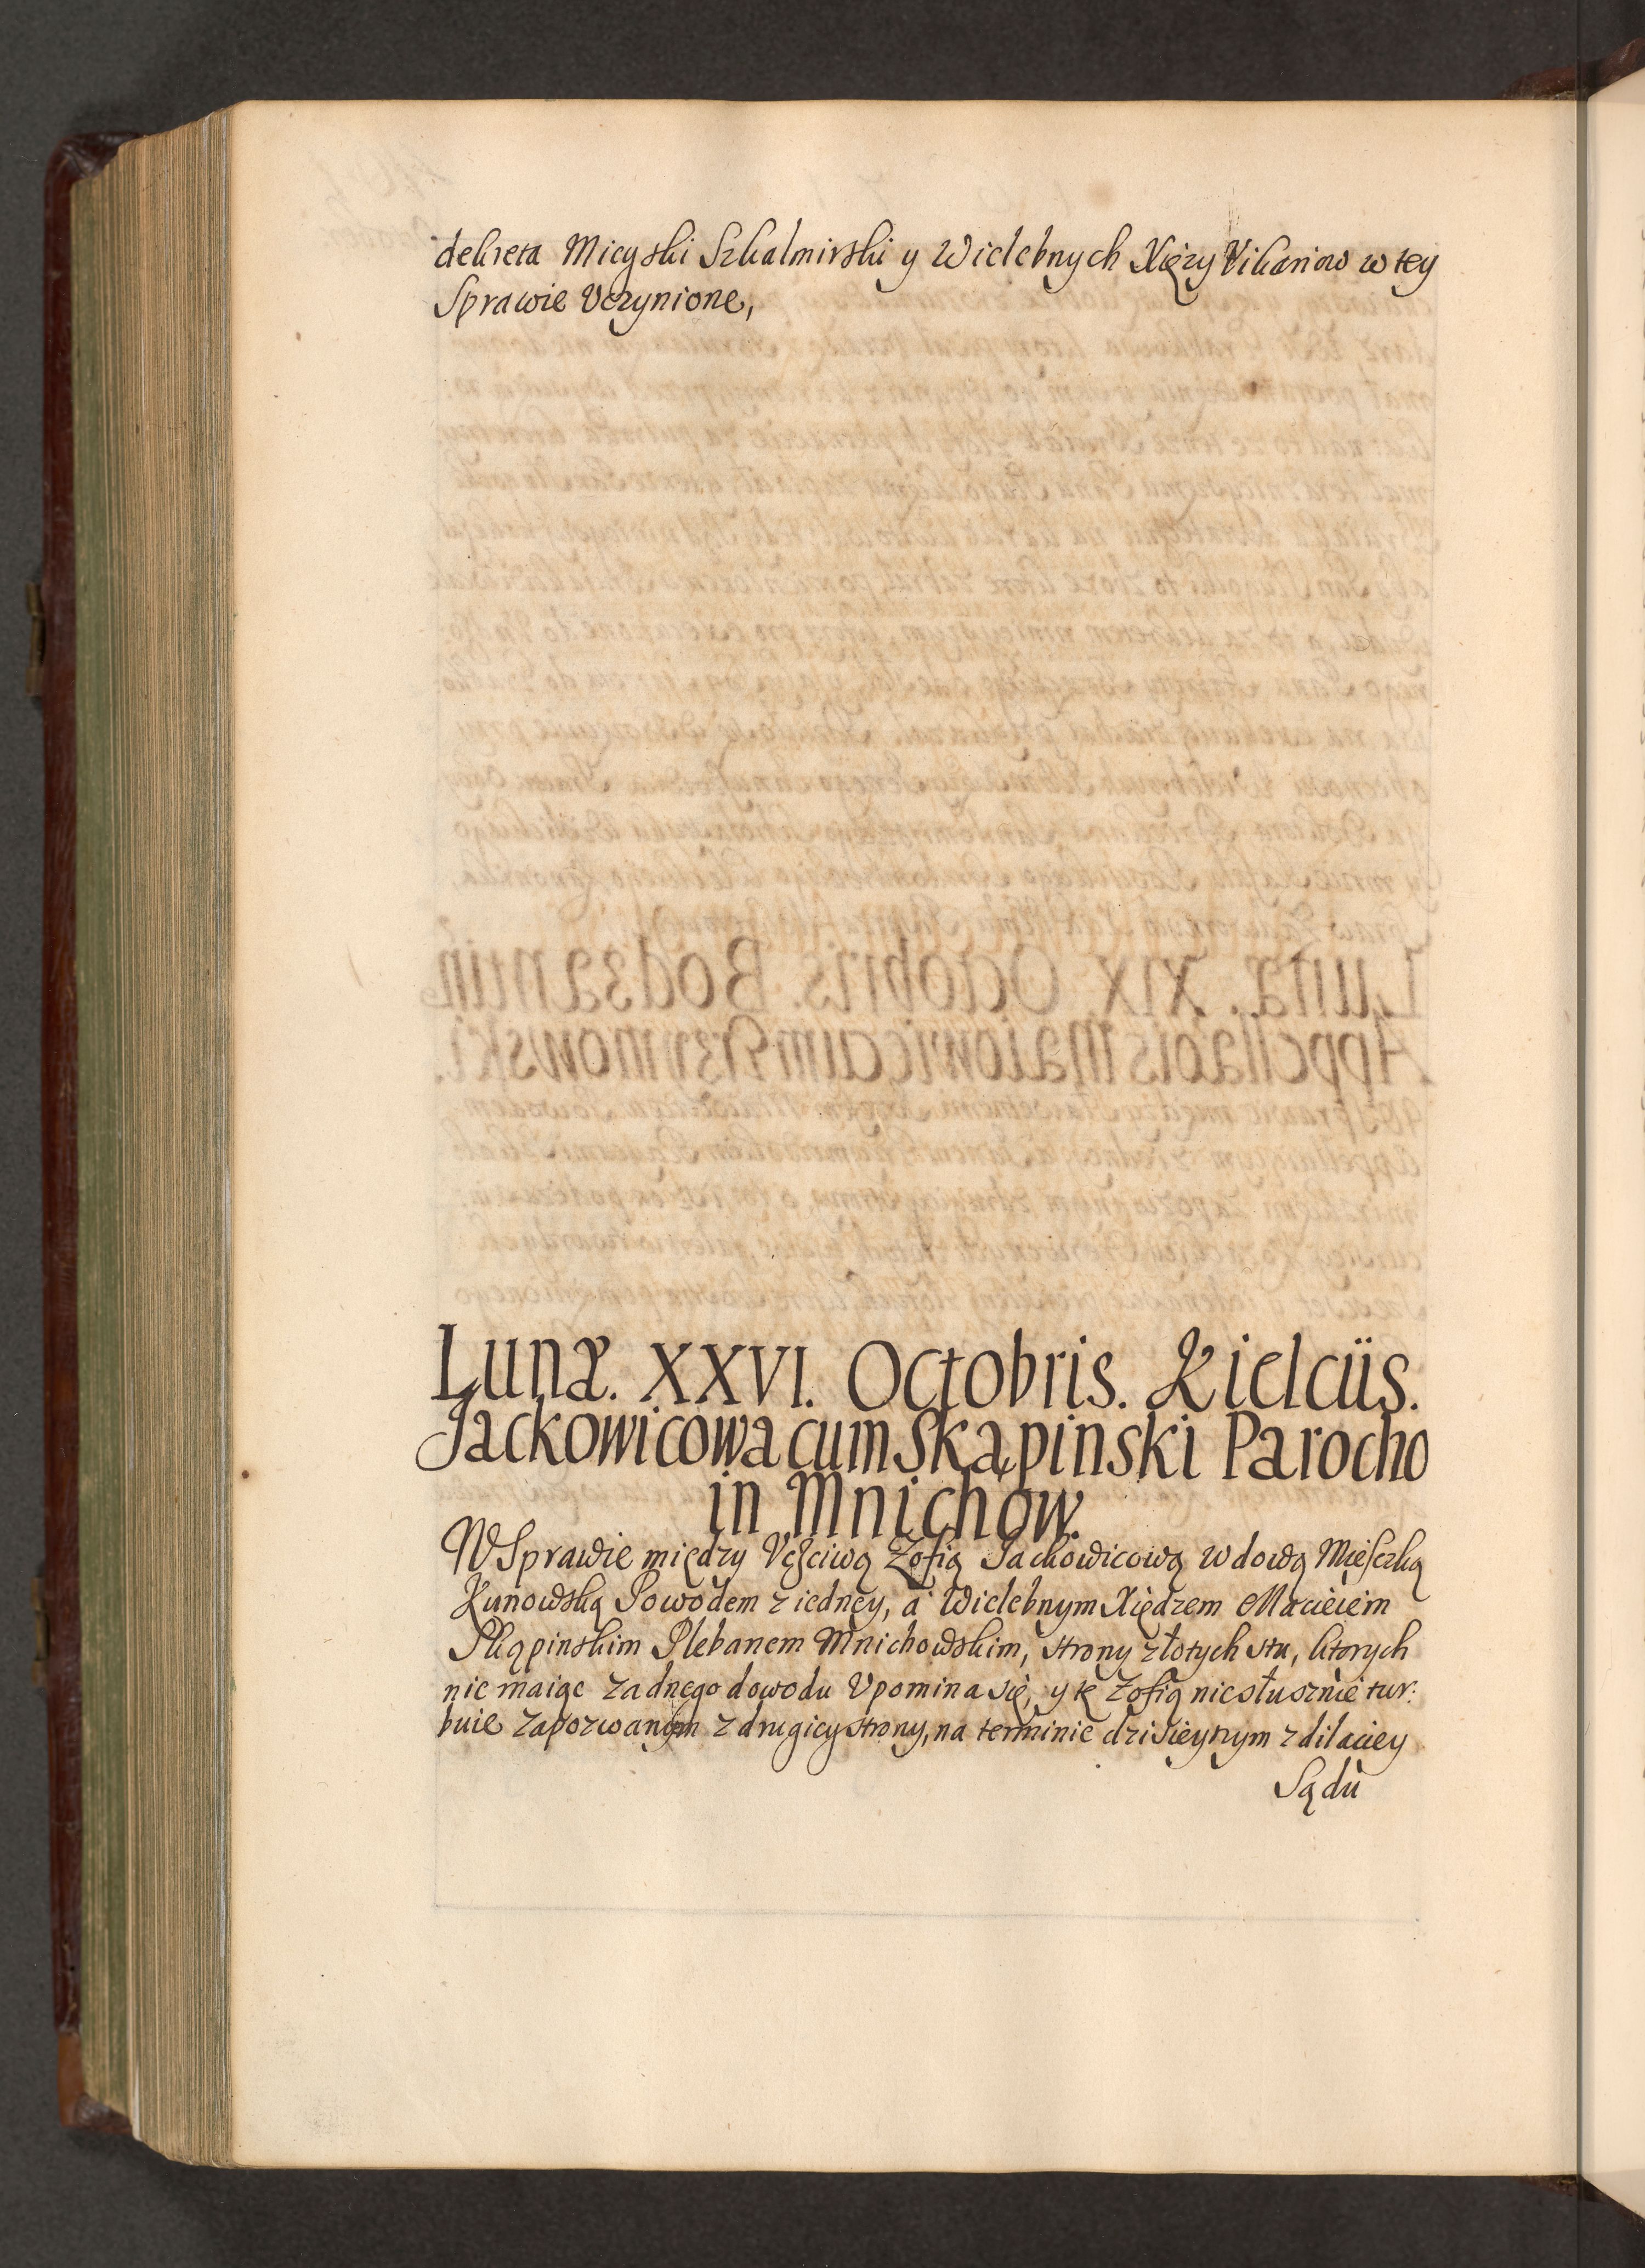 dekreta Mieyski Szkalmirski y Wielebnych Xięzy Vikariow w tey
Sprawie Vczynione,
Lunæ. XXVI. Octobris. Kielciis.
Jackowicowa cum Skąpinski Parocho
in Mnichow.
W Sprawie między Vcściwą Zofią Jackowicową wdową Mieſczką
Kunowską Powodem z iedney, a Wielebnym Xiędzem Macieiem
Skąpinskim Plebanem Mnichowskim, strony złotych stu, ktorych
nie maiąc zadnego dowodu Vpomina się, y tę Zofią niesłusznie tur:
buie zapozwanym z drugiey strony, na terminie dzisieynym z dilaciey
Sądu